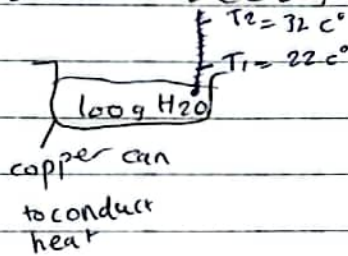 T2 = 32 c°
T1 = 22 c°
100g H20
copper can
to conduct
heat